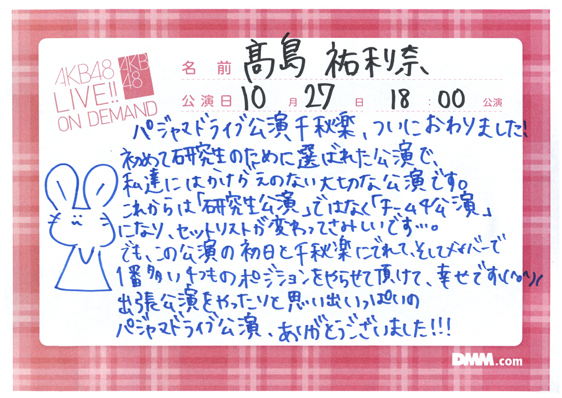 AKB48
LIVE!!
ON DEMAND
AKB
48
名前 髙島 祐利奈
公演日 10 月 27 日 18:00 公演
パジャマドライブ公演千秋楽、ついにおわりました!
初めて研究生のために選ばれた公演で、
私達にはかけがえのない大切な公演です。
これからは「研究生公演」ではなく「チーム4公演」
になり、セットリストが変わってさみしいです…。
でも、この公演の初日と千秋楽にでれて、そしてメンバーで
1番多い4つものポジションをやらせて頂けて、幸せです\(^o^)/
出張公演をやったりと思い出いっぱいの
パジャマドライブ公演、ありがとうございました!!!
DMM.com